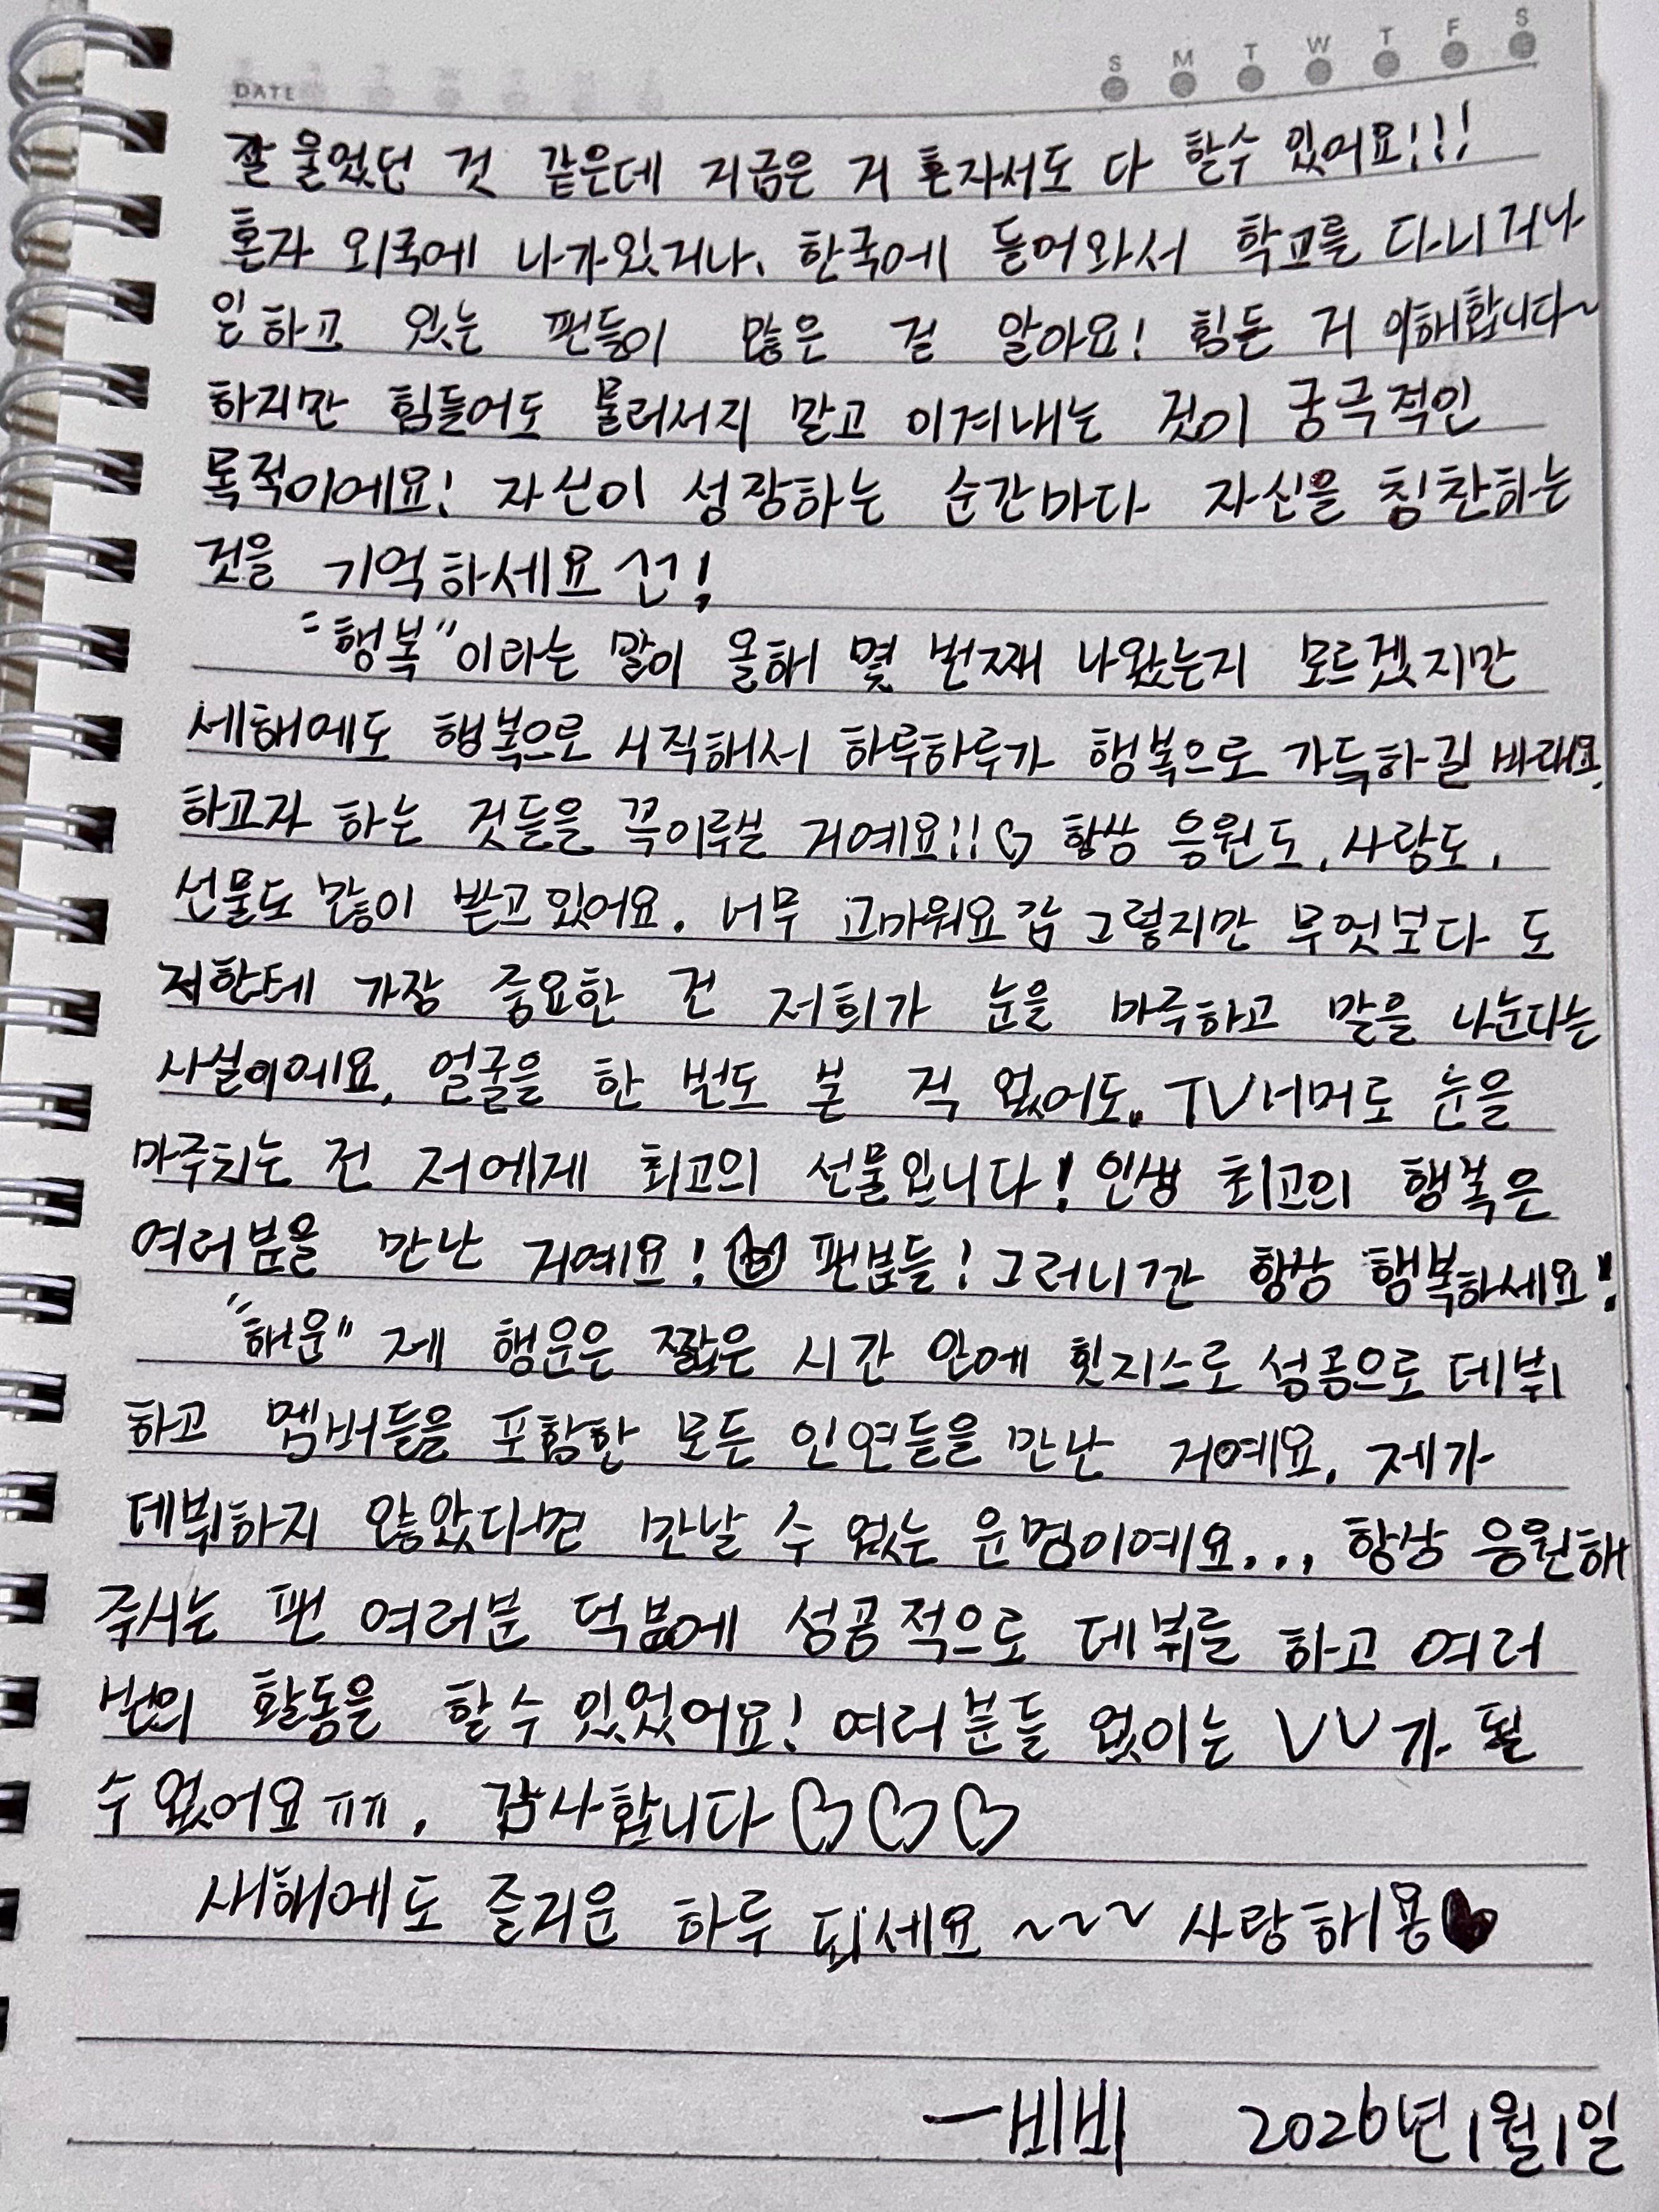 DATE
S M T W T F S
잘 울었던 것 같은데 지금은 거 혼자서도 다 할수 있어요!!!
혼자 외국에 나가있거나, 한국에 들어와서 학교를 다니거나
일하고 있는 팬들이 많은 걸 알아요! 힘든 거 이해합니다~
하지만 힘들어도 물러서지 말고 이겨내는 것이 궁극적인
목적이에요! 자신이 성장하는 순간마다 자신을 칭찬하는
것을 기억하세요
"행복"이라는 말이 올해 몇 번째 나왔는지 모르겠지만
세해에도 행복으로 시작해서 하루하루가 행복으로 가득하길 바래요.
하고자 하는 것들을 꼭이루실 거예요!!♡ 항상 응원도, 사랑도,
선물도 많이 받고 있어요. 너무 고마워요 그렇지만 무엇보다 도
저한테 가장 중요한 건 저희가 눈을 마주하고 말을 나눈다는
사실이에요, 얼굴을 한 번도 본 적 없어도, TV너머로 눈을
마주치는 건 저에게 최고의 선물입니다! 인생 최고의 행복은
여러분을 만난 거예요! 팬분들! 그러니깐 항상 행복하세요!
"해운" 제 행운은 짧은 시간 안에 힛지스로 성공으로 데뷔
하고 멤버들을 포함한 모든 인연들을 만난 거예요, 제가
데뷔하지 않았다면 만날 수 없는 운명이예요... 항상 응원해
주시는 팬 여러분 덕분에 성공적으로 데뷔를 하고 여러
번의 활동을 할수 있었어요! 여러분들 없이는 VV가 될
수 없어요ㅠㅠ. 감사합니다♡♡♡
새해에도 즐거운 하루 되세요~~~ 사랑해용♥
—비비 2026년 1월 1일